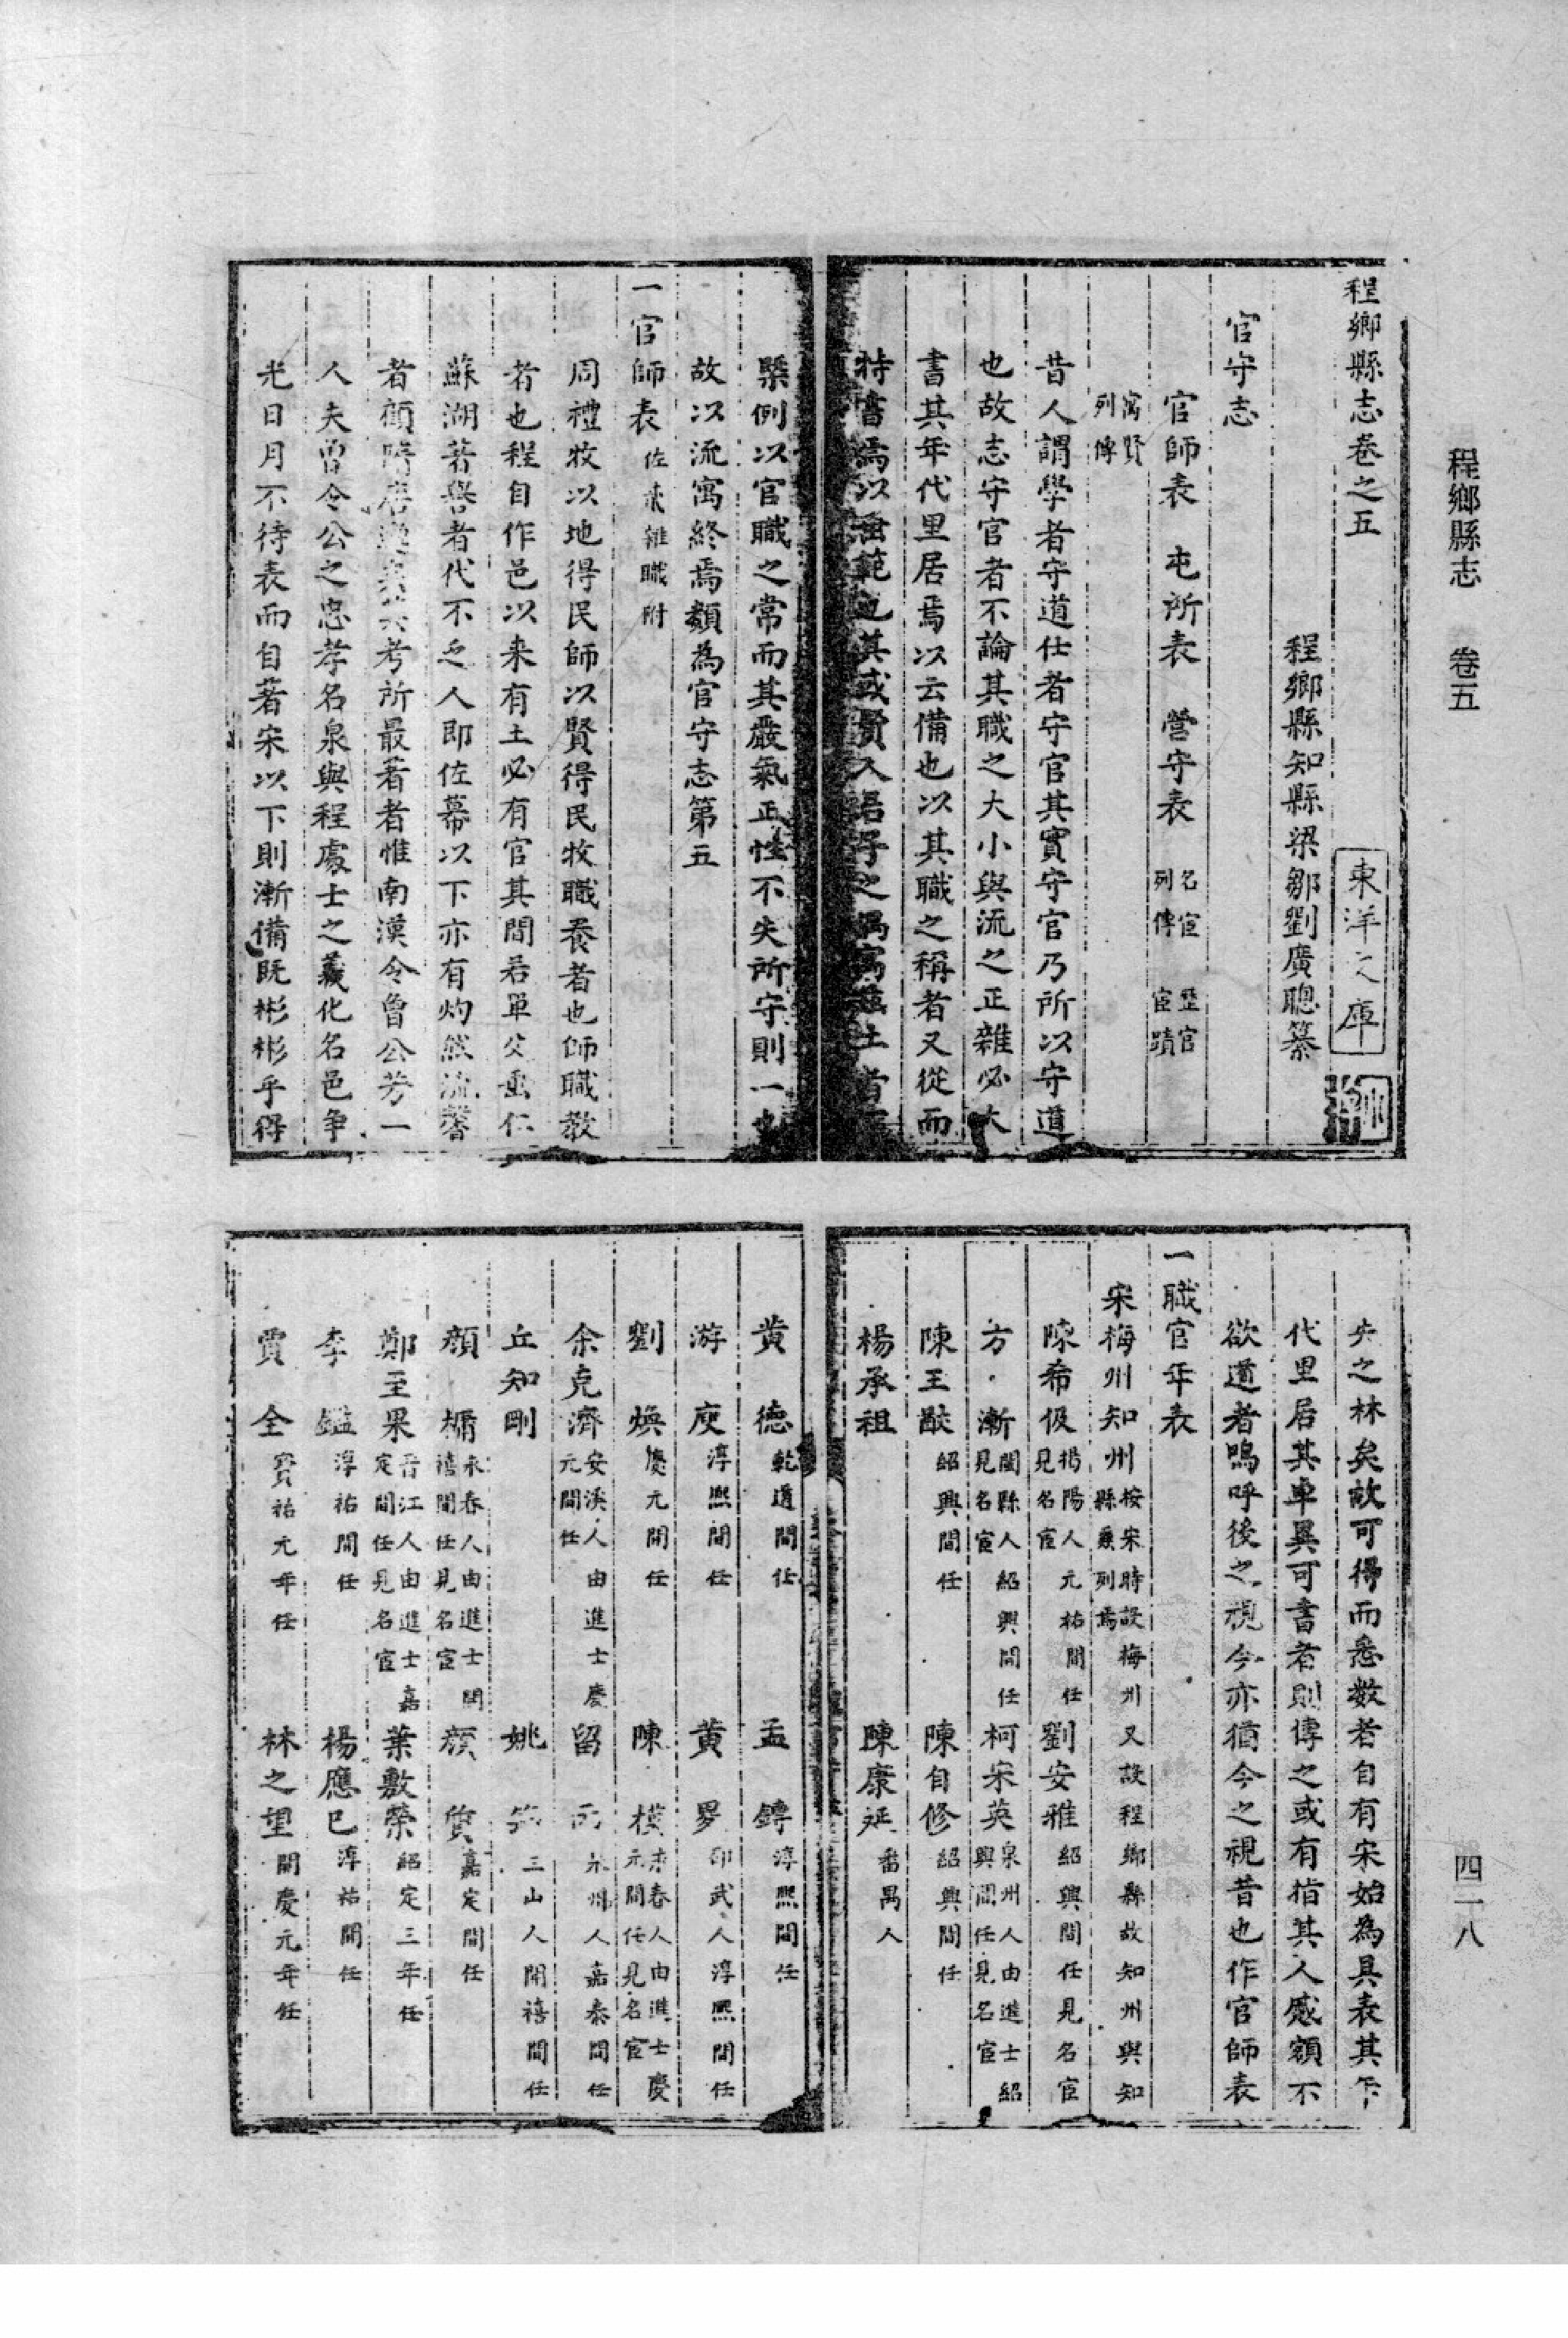 程鄉縣志 卷五
四一八
程鄉縣志卷之五
東洋文庫
程鄉縣知縣梁鄒劉廣聰纂
官守志
官師表 屯所表 營守表 名宦列傳 歷官宦蹟
寓賢列傳
昔人謂學者守道仕者守官其實守官乃所以守道
也故志守官者不論其職之大小與流之正雜必大
書其年代里居焉以云備也以其職之稱者又從而
特書焉以垂範也其或賢人君子之偶寓茲土者
槩例以官職之常而其嚴氣正性不失所守則一也
故以流寓終焉類為官守志第五
一官師表 佐貳雜職附
周禮牧以地得民師以賢得民牧職養者也師職教
者也程自作邑以来有土必有官其間若單父密仁
蘇湖著譽者代不乏人即佐幕以下亦有灼然流馨
者顧時考所最著者惟南漢令曾公芳一
人夫曾令公之忠孝名泉與程處士之義化名邑争
光日月不待表而自著宋以下則漸備既彬彬乎得
失之林矣故可得而悉数者自有宋始為具表其年
代里居其卓異可書者則傳之或有指其人蹙額不
欲道者嗚呼後之視今亦猶今之視昔也作官師表
一職官年表
宋梅州知州 按宋時設梅州又設程鄉縣故知州與知縣竝列焉
陳希伋 揭陽人元祐間任見名宦 劉安雅 紹興間任見名宦
方漸 閩縣人紹興間任見名宦 柯宋英 泉州人由進士紹興間任見名宦
陳王猷 紹興間任 陳自修 紹興間任
楊承祖 陳康延 番禺人
黄德 乾道間任 孟鑄 淳熙間任
游庾 淳熙間任 黄畧 邵武人淳熙間任
劉煥 慶元間任 陳模 永春人由進士慶元間任見名宦
余克濟 安溪人由進士慶元間任 留 人嘉泰間任
丘知剛 姚 三山人開禧間任
顔樀 永春人由進士開禧間任見名宦 顔質 嘉定間任
鄭至果 晋江人由進士嘉定間任見名宦 葉敷榮 紹定三年任
李鑑 淳祐間任 楊應巳 淳祐間任
賈全 寳祐元年任 林之望 開慶元年任